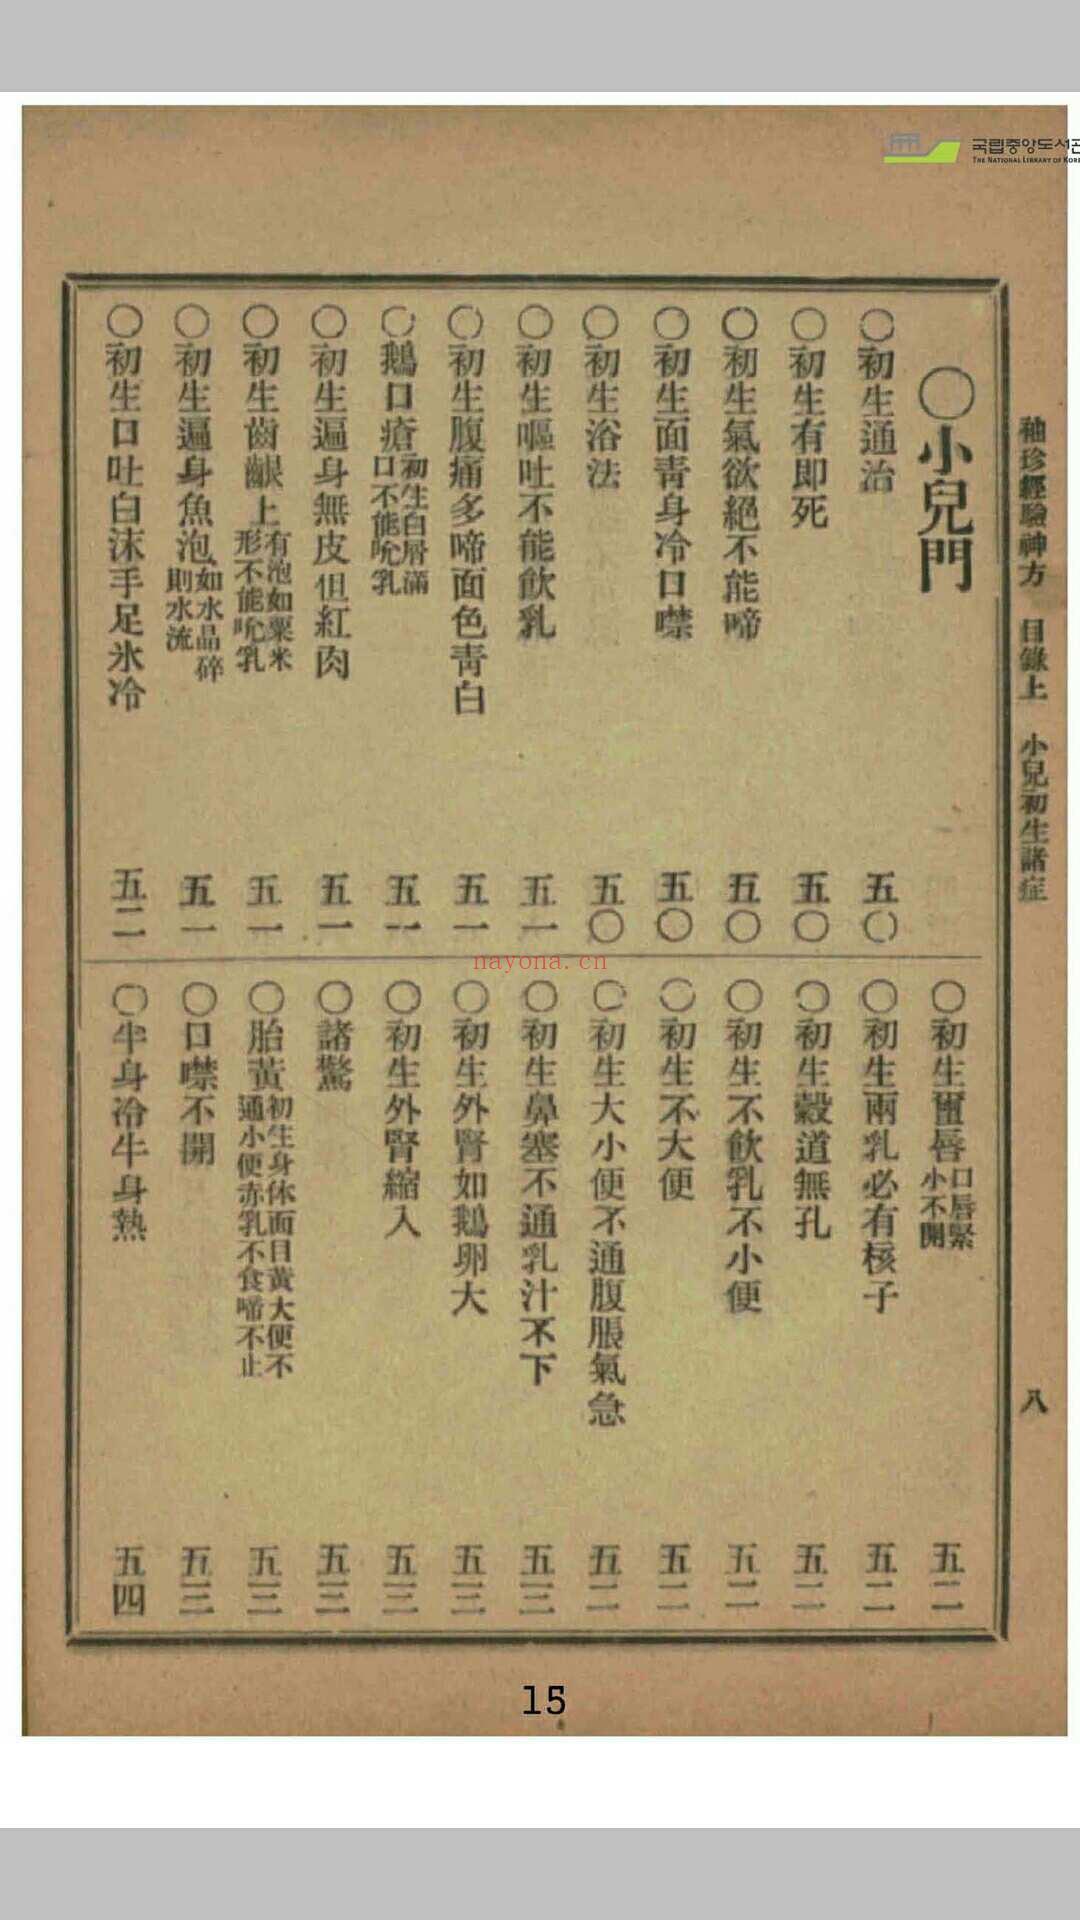 국립중앙도서관
THE NATIONAL LIBRARY OF KOREA
袖珍經驗神方 目錄上 小兒初生諸症 八
〇小兒門
〇初生通治 五〇
〇初生有即死 五〇
〇初生氣欲絕不能啼 五〇
〇初生面青身冷口噤 五〇
〇初生浴法 五〇
〇初生嘔吐不能飲乳 五一
〇初生腹痛多啼面色青白 五一
〇鵝口瘡 初生白屑滿口不能吮乳 五一
〇初生遍身無皮但紅肉 五一
〇初生齒齦上 有泡如粟米形不能吮乳 五一
〇初生遍身魚泡 如水晶碎則水流 五一
〇初生口吐白沫手足氷冷 五二
〇初生薑唇 口唇緊小不開 五二
〇初生兩乳必有核子 五二
〇初生穀道無孔 五二
〇初生不飲乳不小便 五二
〇初生不大便 五二
〇初生大小便不通腹脹氣急 五二
〇初生鼻塞不通乳汁不下 五三
〇初生外腎如鵝卵大 五三
〇初生外腎縮入 五三
〇諸驚 五三
〇胎黃 初生身体面目黃大便不通小便赤乳不食啼不止 五三
〇口噤不開 五三
〇半身冷半身熱 五四
nayona.cn
15